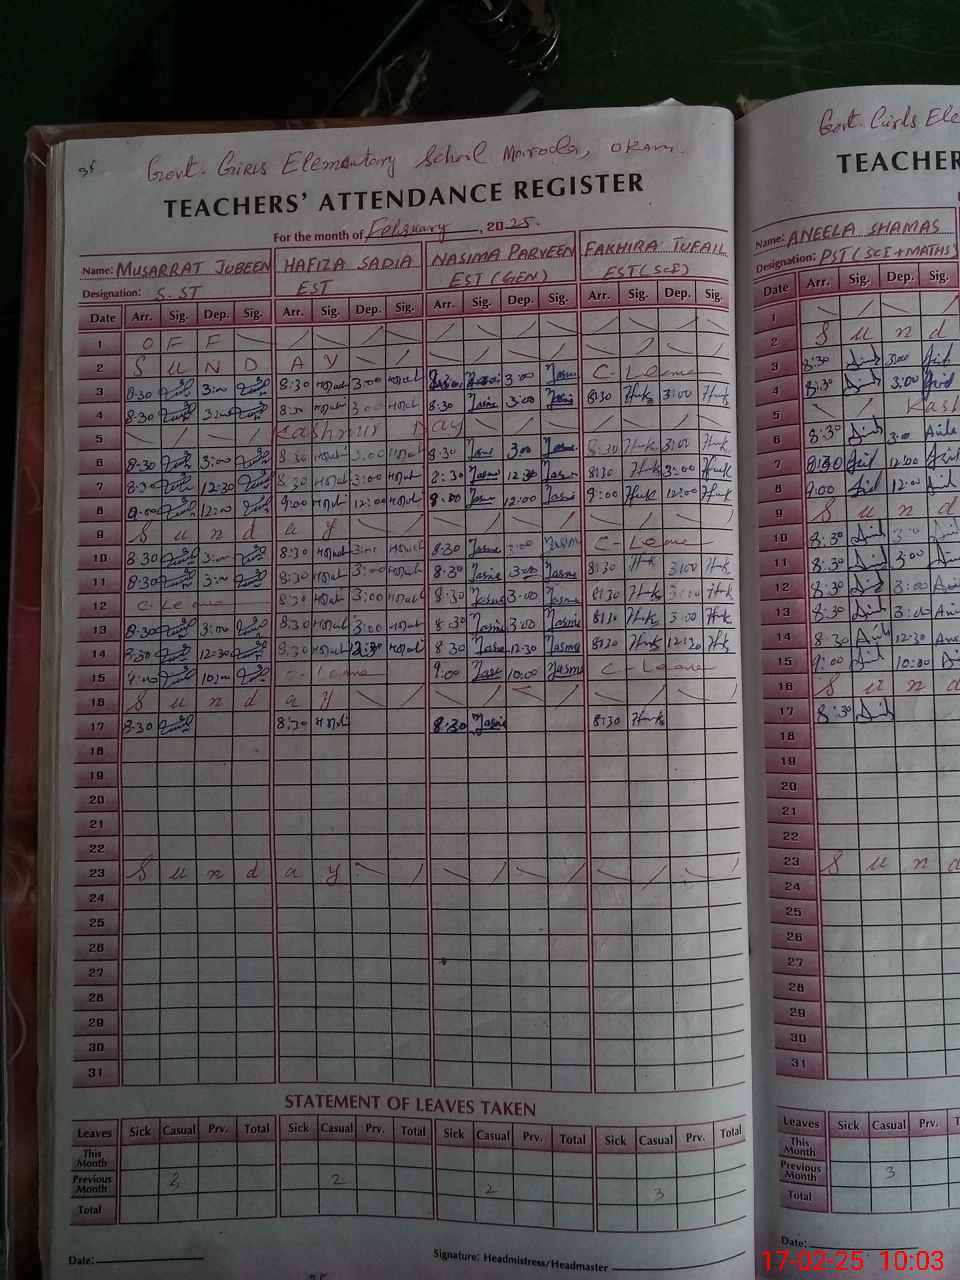 Govt. Girls Elementary School
TEACHERS' ATTENDANCE REGISTER
For the month of February, 2025.
Name: MUSARRAT JUBEEN HAFIZA SADIA NASIMA PARVEEN FAKHIRA TUFAIL
Designation: S.ST EST EST (GEN) EST (SCI)
Date Arr. Sig. Dep. Sig. Arr. Sig. Dep. Sig. Arr. Sig. Dep. Sig. Arr. Sig. Dep. Sig.
1 OFF
2 SUNDAY
3 8:30 3:00 8:30 3:00 8:30 3:00 C-Leave
4 8:30 3:00 8:30 3:00 8:30 3:00 8:30 3:00
5 Kashmir Day
6 8:30 3:00 8:30 3:00 8:30 3:00 8:30 3:00
7 8:30 12:30 8:30 3:00 8:30 12:30 8:30 3:00
8 9:00 12:00 9:00 12:00 9:00 12:00 9:00 12:00
9 Sunday
10 8:30 3:00 8:30 3:00 8:30 3:00 C-Leave
11 8:30 3:00 8:30 3:00 8:30 3:00 8:30 3:00
12 C-Leave 8:30 3:00 8:30 3:00 8:30 3:00
13 8:30 3:00 8:30 3:00 8:30 3:00 8:30 3:00
14 8:30 12:30 8:30 12:30 8:30 12:30 8:30 12:30
15 9:00 10:00 C-Leave 9:00 10:00 C-Leave
16 Sunday
17 8:30 8:30 8:30 8:30
18
19
20
21
22
23 Sunday
24
25
26
27
28
29
30
31
STATEMENT OF LEAVES TAKEN
Leaves Sick Casual Prv. Total Sick Casual Prv. Total Sick Casual Prv. Total Sick Casual Prv. Total
This Month
Previous Month 2 2 3
Total
Date:
Signature: Headmistress/Headmaster
Govt. Girls Ele
TEACHER
Name: ANEELA SHAMAS
Designation: PST (SCI + MATHS)
Date Arr. Sig. Dep. Sig.
1
2 Sund
3 8:30 3:00
4 8:30 3:00
5 Kash
6 8:30 3:00
7 8:30 12:00
8 9:00 12:00
9 Sund
10 8:30 3:00
11 8:30 3:00
12 8:30 3:00
13 8:30 3:00
14 8:30 12:30
15 9:00 10:00
16 Sund
17 8:30
18
19
20
21
22
23 Sund
24
25
26
27
28
29
30
31
Leaves Sick Casual Prv. T
This Month
Previous Month 3
Total
Date:
17-02-25 10:03